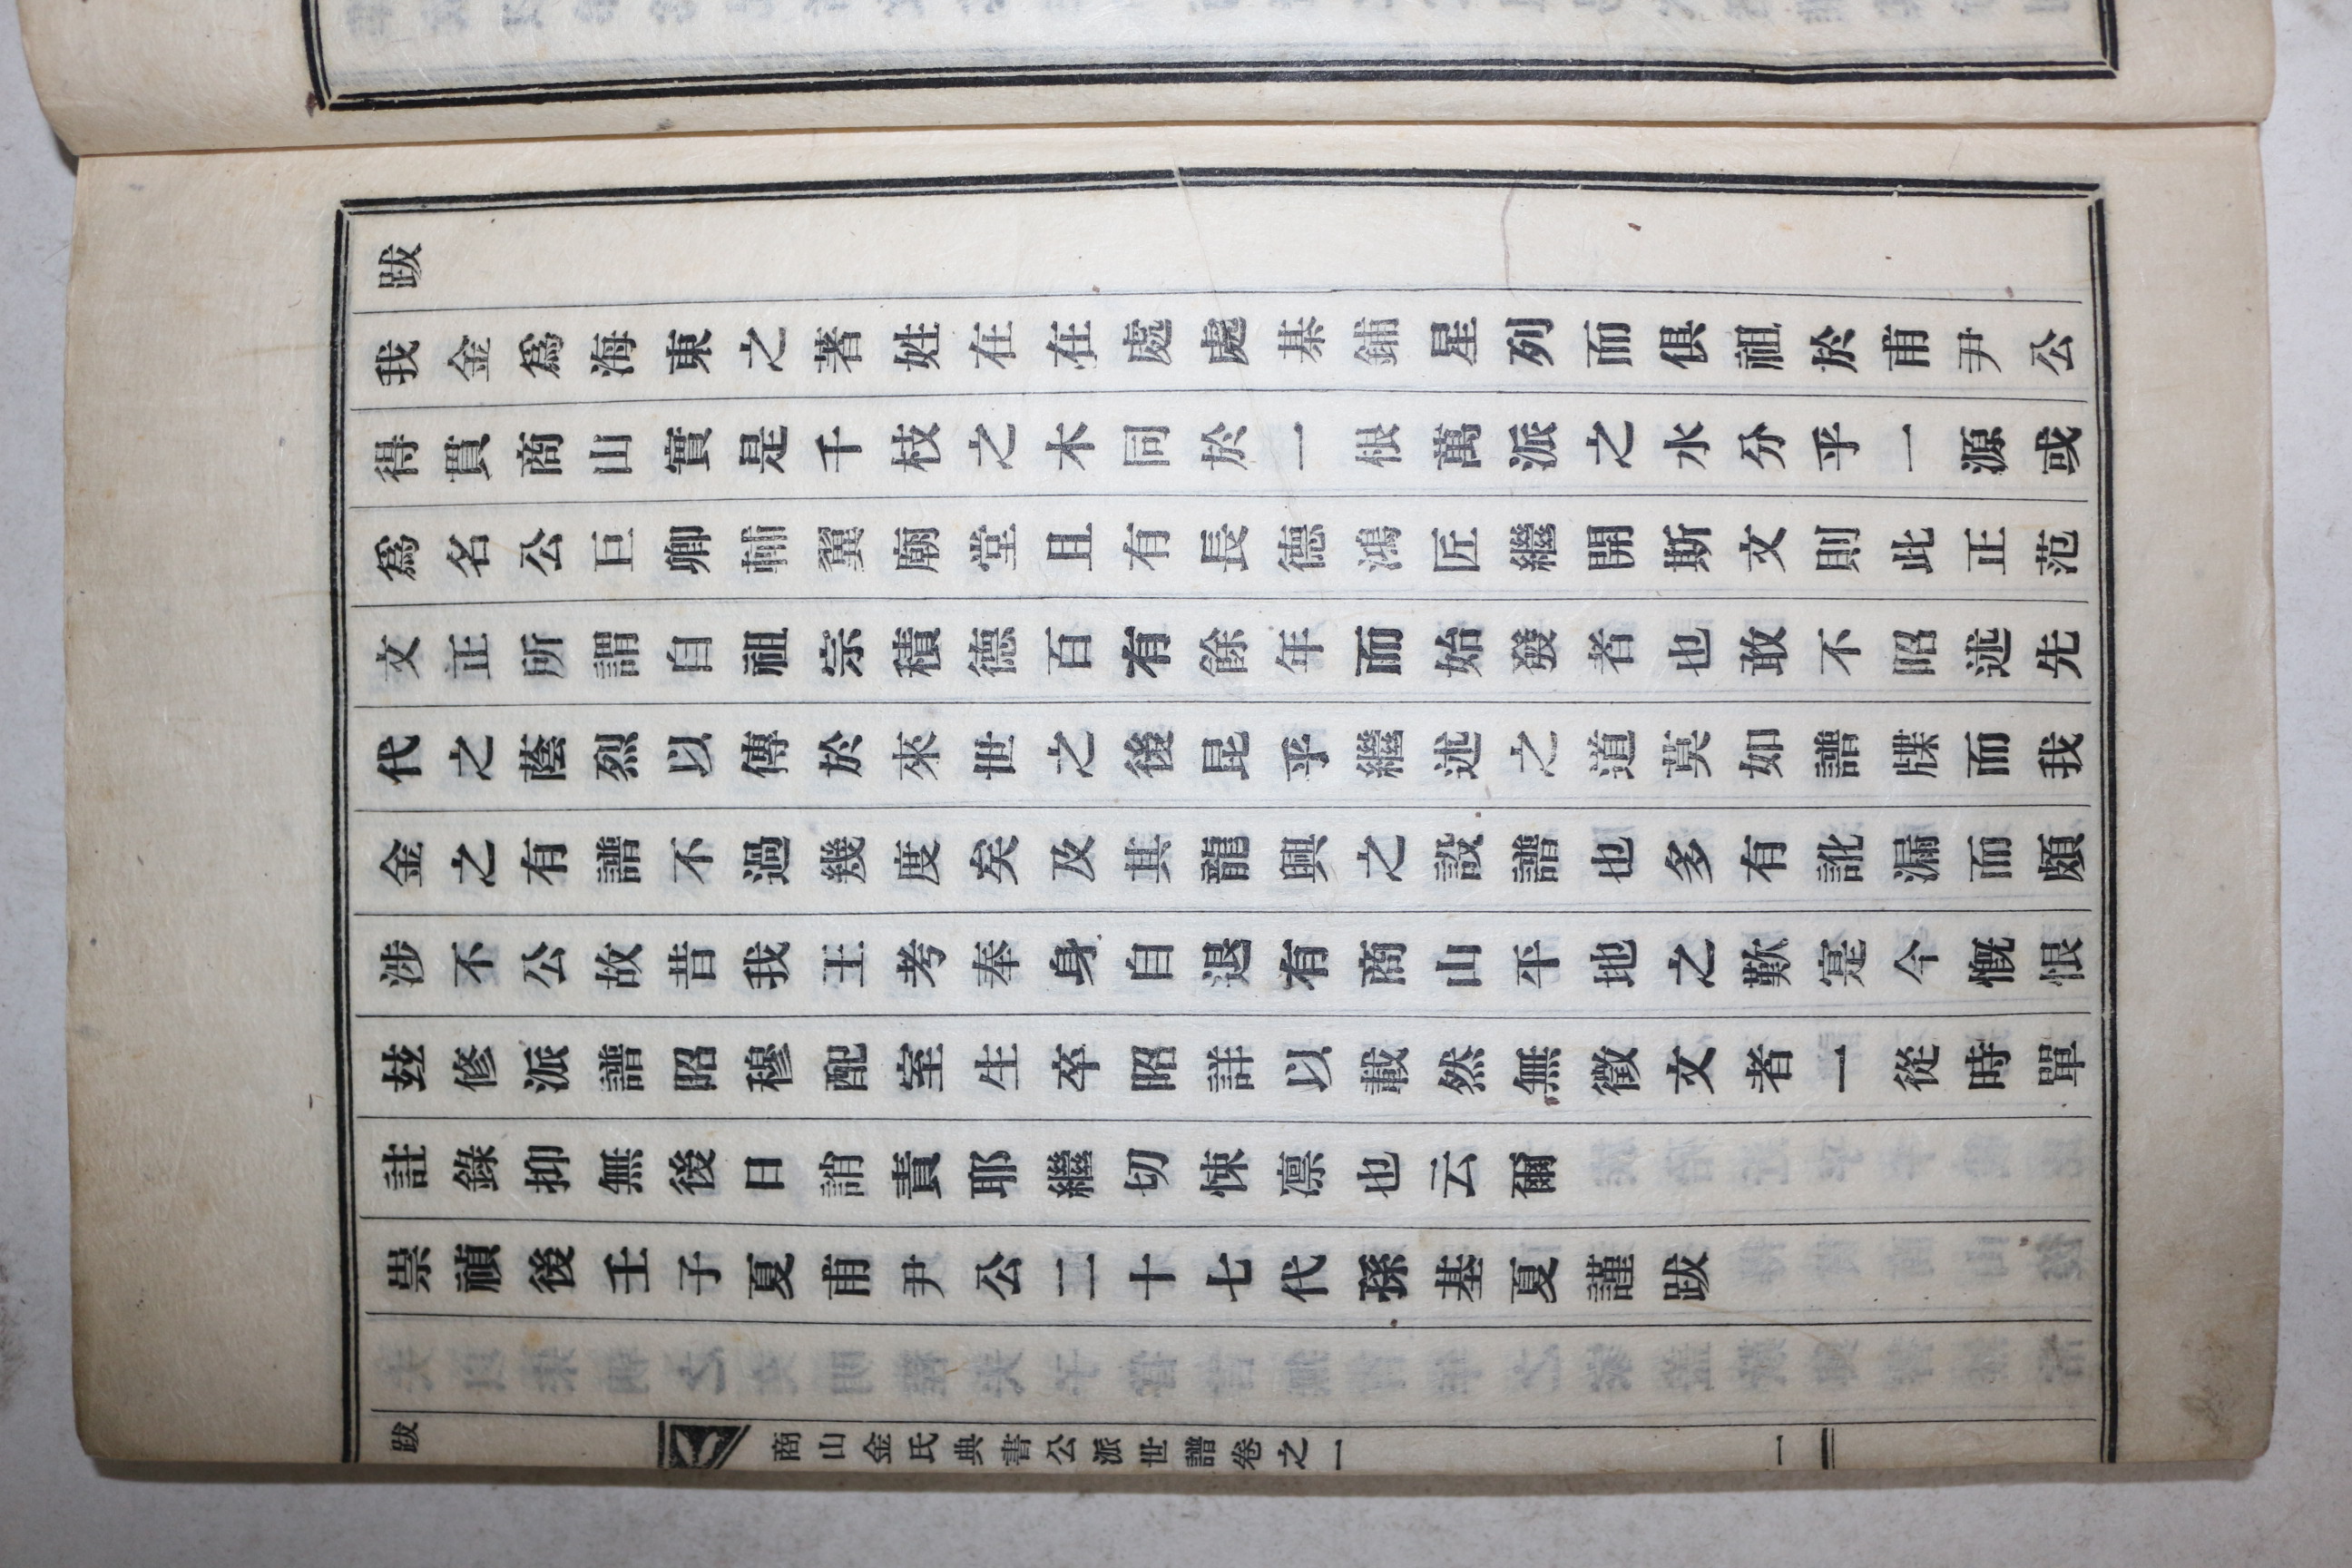 跋
我金爲海東之著姓在在處處棊鋪星列而俱祖於甫尹公
得貫商山實是千枝之木同於一根萬派之水分乎一源或
爲名公巨卿輔翼廟堂且有長德鴻匠繼開斯文則此正范
文正所謂自祖宗積德百有餘年而始發者也敢不昭述先
代之蔭烈以傳於來世之後昆乎繼述之道莫如譜牒而我
金之有譜不過幾度矣及其龍興之設譜也多有訛漏而頗
涉不公故昔我王考奉身自退有商山平地之歎寔今慨恨
玆修派譜昭穆配室生卒昭詳以載然無徵文者一從時單
註錄抑無後日誚責耶繼切悚凛也云爾
崇禎後壬子夏甫尹公二十七代孫基夏謹跋
跋 商山金氏典書公派世譜卷之一 一